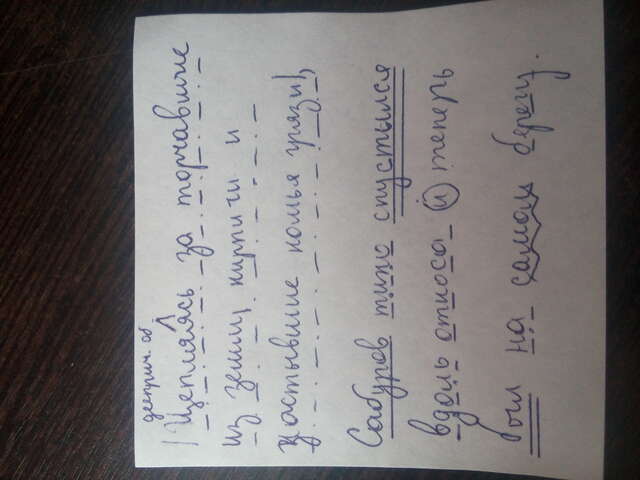 деепричн. об
|Цепляясь за торчавшие
из земли кирпичи и
застывшие комья грязи|,
Сабуров тихо спустился
вдоль откоса и теперь
был на самом берегу.